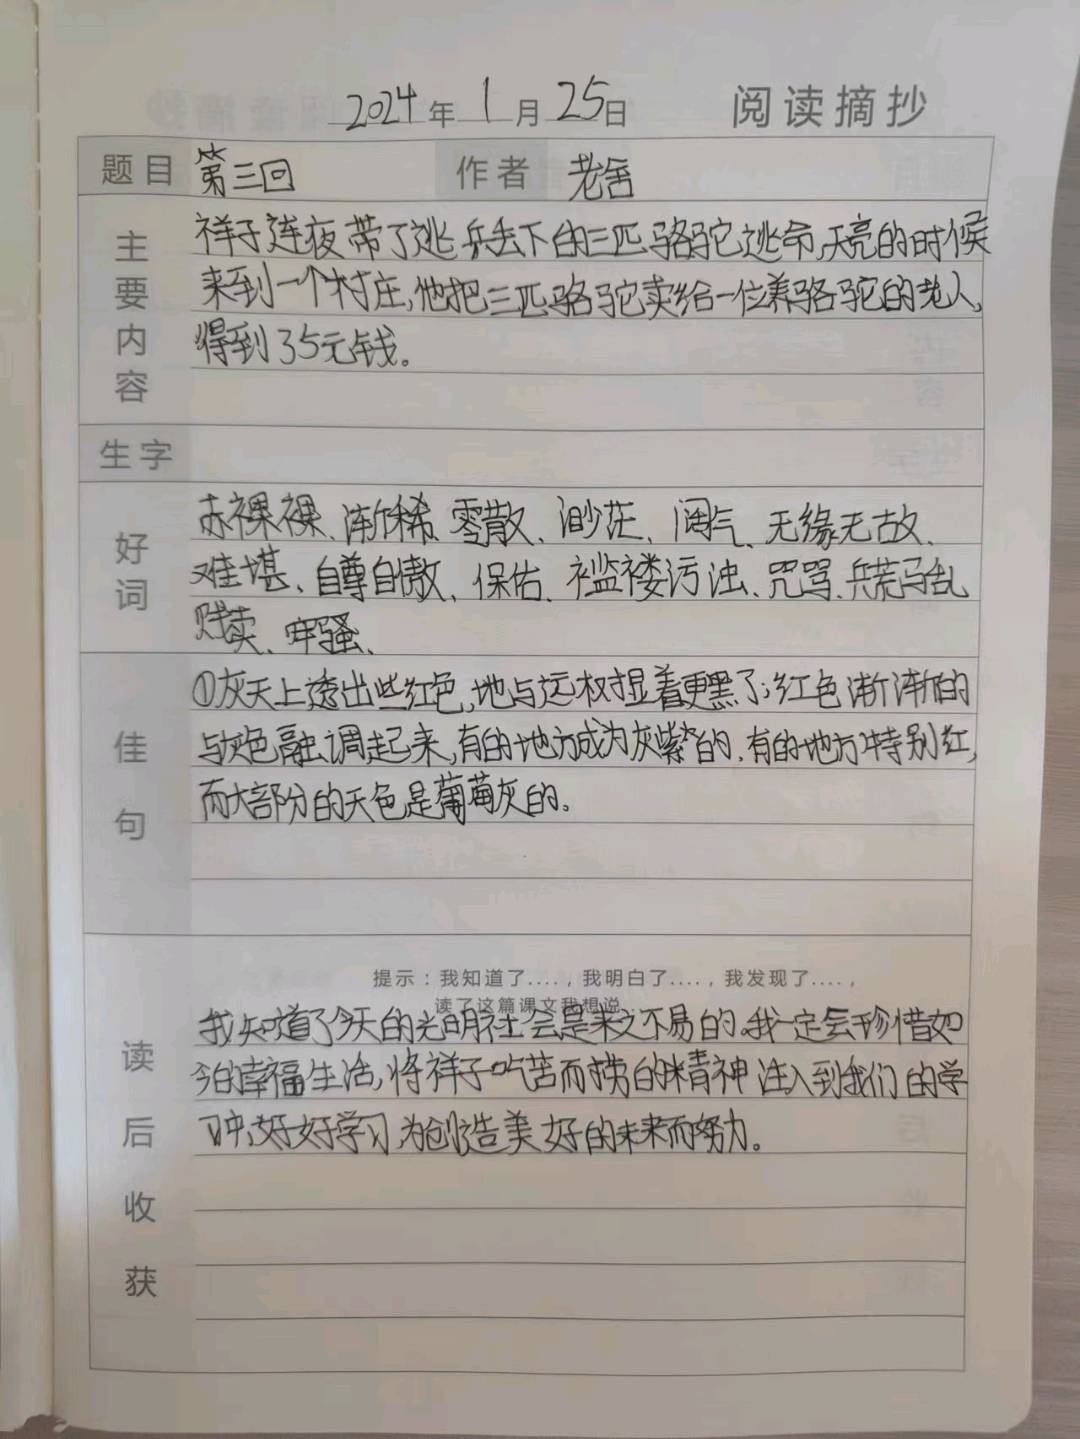 2024年1月25日 阅读摘抄
题目 第三回 作者 老舍
主要内容
祥子连夜带了逃兵丢下的三匹骆驼逃命,天亮的时候
来到一个村庄,他把三匹骆驼卖给一位养骆驼的老人,
得到35元钱。
生字
好词
赤裸裸、渐稀、零散、渺茫、阔气、无缘无故、
难堪、自尊自傲、保佑、褴褛污浊、咒骂、兵荒马乱
贱卖、牢骚、
佳句
①灰天上透出些红色,地与远权显着更黑了;红色渐渐的
与灰色融调起来,有的地方成为灰紫的,有的地方特别红,
而大部分的天色是葡萄灰的。
读后收获
提示:我知道了....,我明白了....,我发现了....,
读了这篇课文我想说
我知道了今天的光明社会是来之不易的。我一定会珍惜如
今的幸福生活,将祥子吃苦而捞的精神注入到我们的学
习中,好好学习为创造美好的未来而努力。